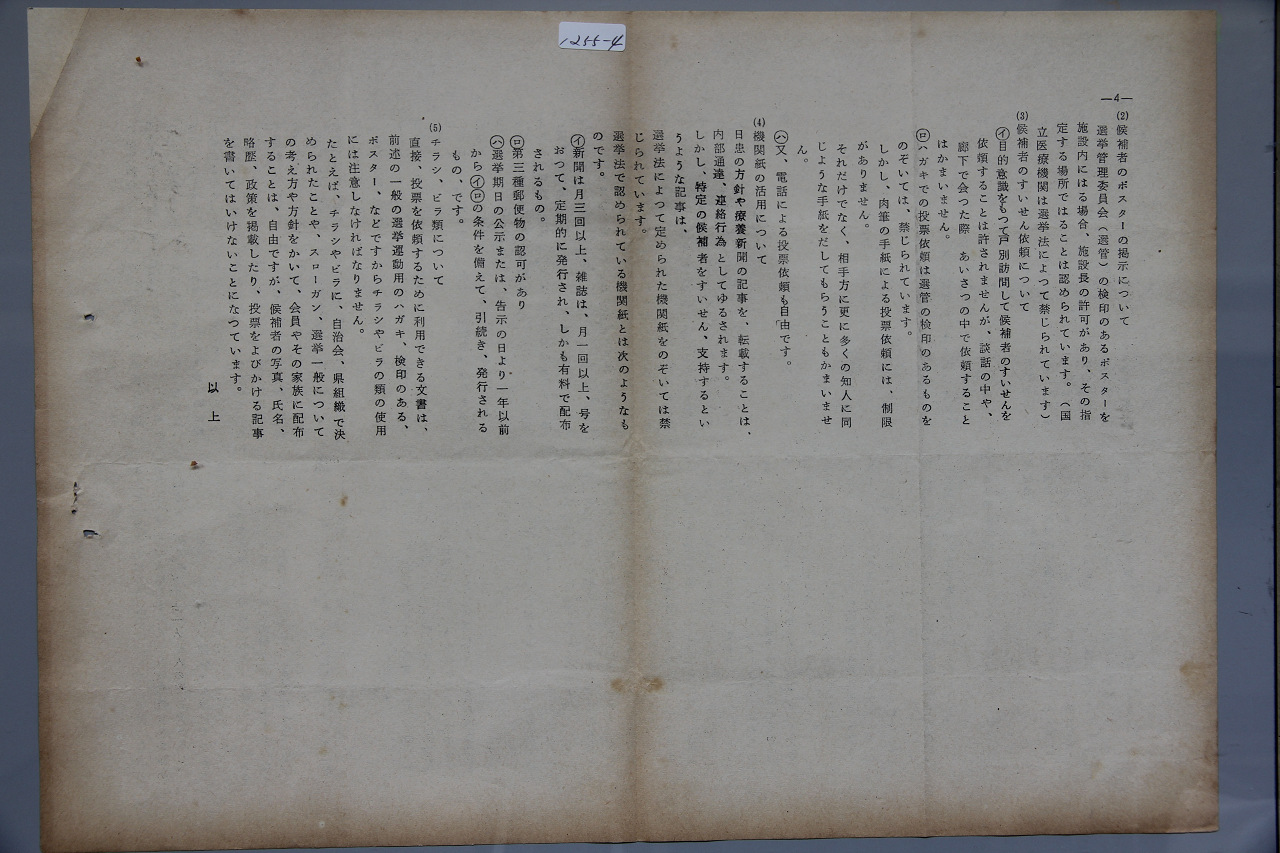 1255-4
—4—
(2) 候補者のポスターの掲示について
選挙管理委員会（選管）の検印のあるポスターを
施設内にはる場合、施設長の許可があり、その指
定する場所ではることは認められています。（国
立医療機関は選挙法によつて禁じられています）
(3) 候補者のすいせん依頼について
㋑目的意識をもつて戸別訪問して候補者のすいせんを
依頼することは許されませんが、談話の中や、
廊下で会つた際　あいさつの中で依頼すること
はかまいません。
㋺ハガキでの投票依頼は選管の検印のあるものを
のぞいては、禁じられています。
しかし、肉筆の手紙による投票依頼には、制限
がありません。
それだけでなく、相手方に更に多くの知人に同
じような手紙をだしてもらうこともかまいませ
ん。
㋩又、電話による投票依頼も自由です。
(4) 機関紙の活用について
日患の方針や療養新聞の記事を、転載することは、
内部通達、連絡行為としてゆるされます。
しかし、特定の候補者をすいせん、支持するとい
うような記事は、
選挙法によつて定められた機関紙をのぞいては禁
じられています。
選挙法で認められている機関紙とは次のようなも
のです。
㋑新聞は月三回以上、雑誌は、月一回以上、号を
おつて、定期的に発行され、しかも有料で配布
されるもの。
㋺第三種郵便物の認可があり
㋩選挙期日の公示または、告示の日より一年以前
から㋑㋺の条件を備えて、引続き、発行される
もの、です。
(5) チラシ、ビラ類について
直接、投票を依頼するために利用できる文書は、
前述の一般の選挙運動用のハガキ、検印のある、
ポスター、などですからチラシやビラの類の使用
には注意しなければなりません。
たとえば、チラシやビラに、自治会、県組織で決
められたことや、スローガン、選挙一般について
の考え方や方針をかいて、会員やその家族に配布
することは、自由ですが、候補者の写真、氏名、
略歴、政策を掲載したり、投票をよびかける記事
を書いてはいけないことになつています。
以上